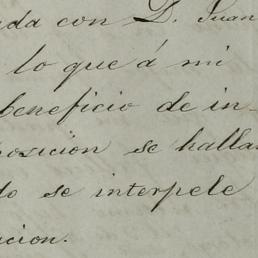 ada con D. Juan
lo que á mi
beneficio de in-
posición se halla
do se interpele
acion.